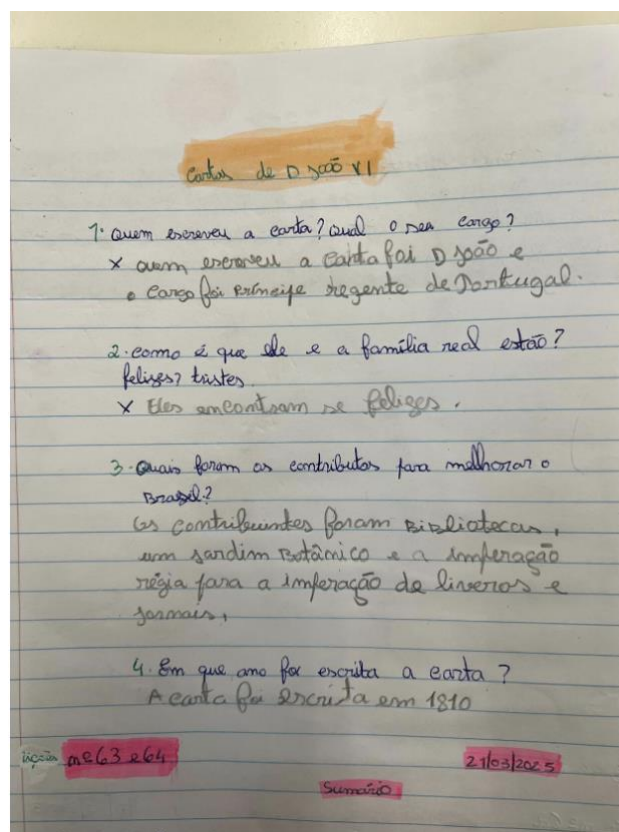 Cartas de D João VI
1. Quem escreveu a carta? Qual o seu cargo?
x Quem escreveu a Carta foi D João e
o cargo foi Príncipe regente de Portugal.
2. como é que ele e a família real estão?
felizes? tristes.
x Eles encontram se felizes.
3. Quais foram os contributos para melhorar o
Brasil?
Os contribuintes foram Bibliotecas,
um jardim Botânico e a imperação
régia para a imperação de liveros e
jornais,
4. Em que ano foi escrita a carta?
A carta foi escrita em 1810
lições nº 63 e 64 21/03/2025
Sumário